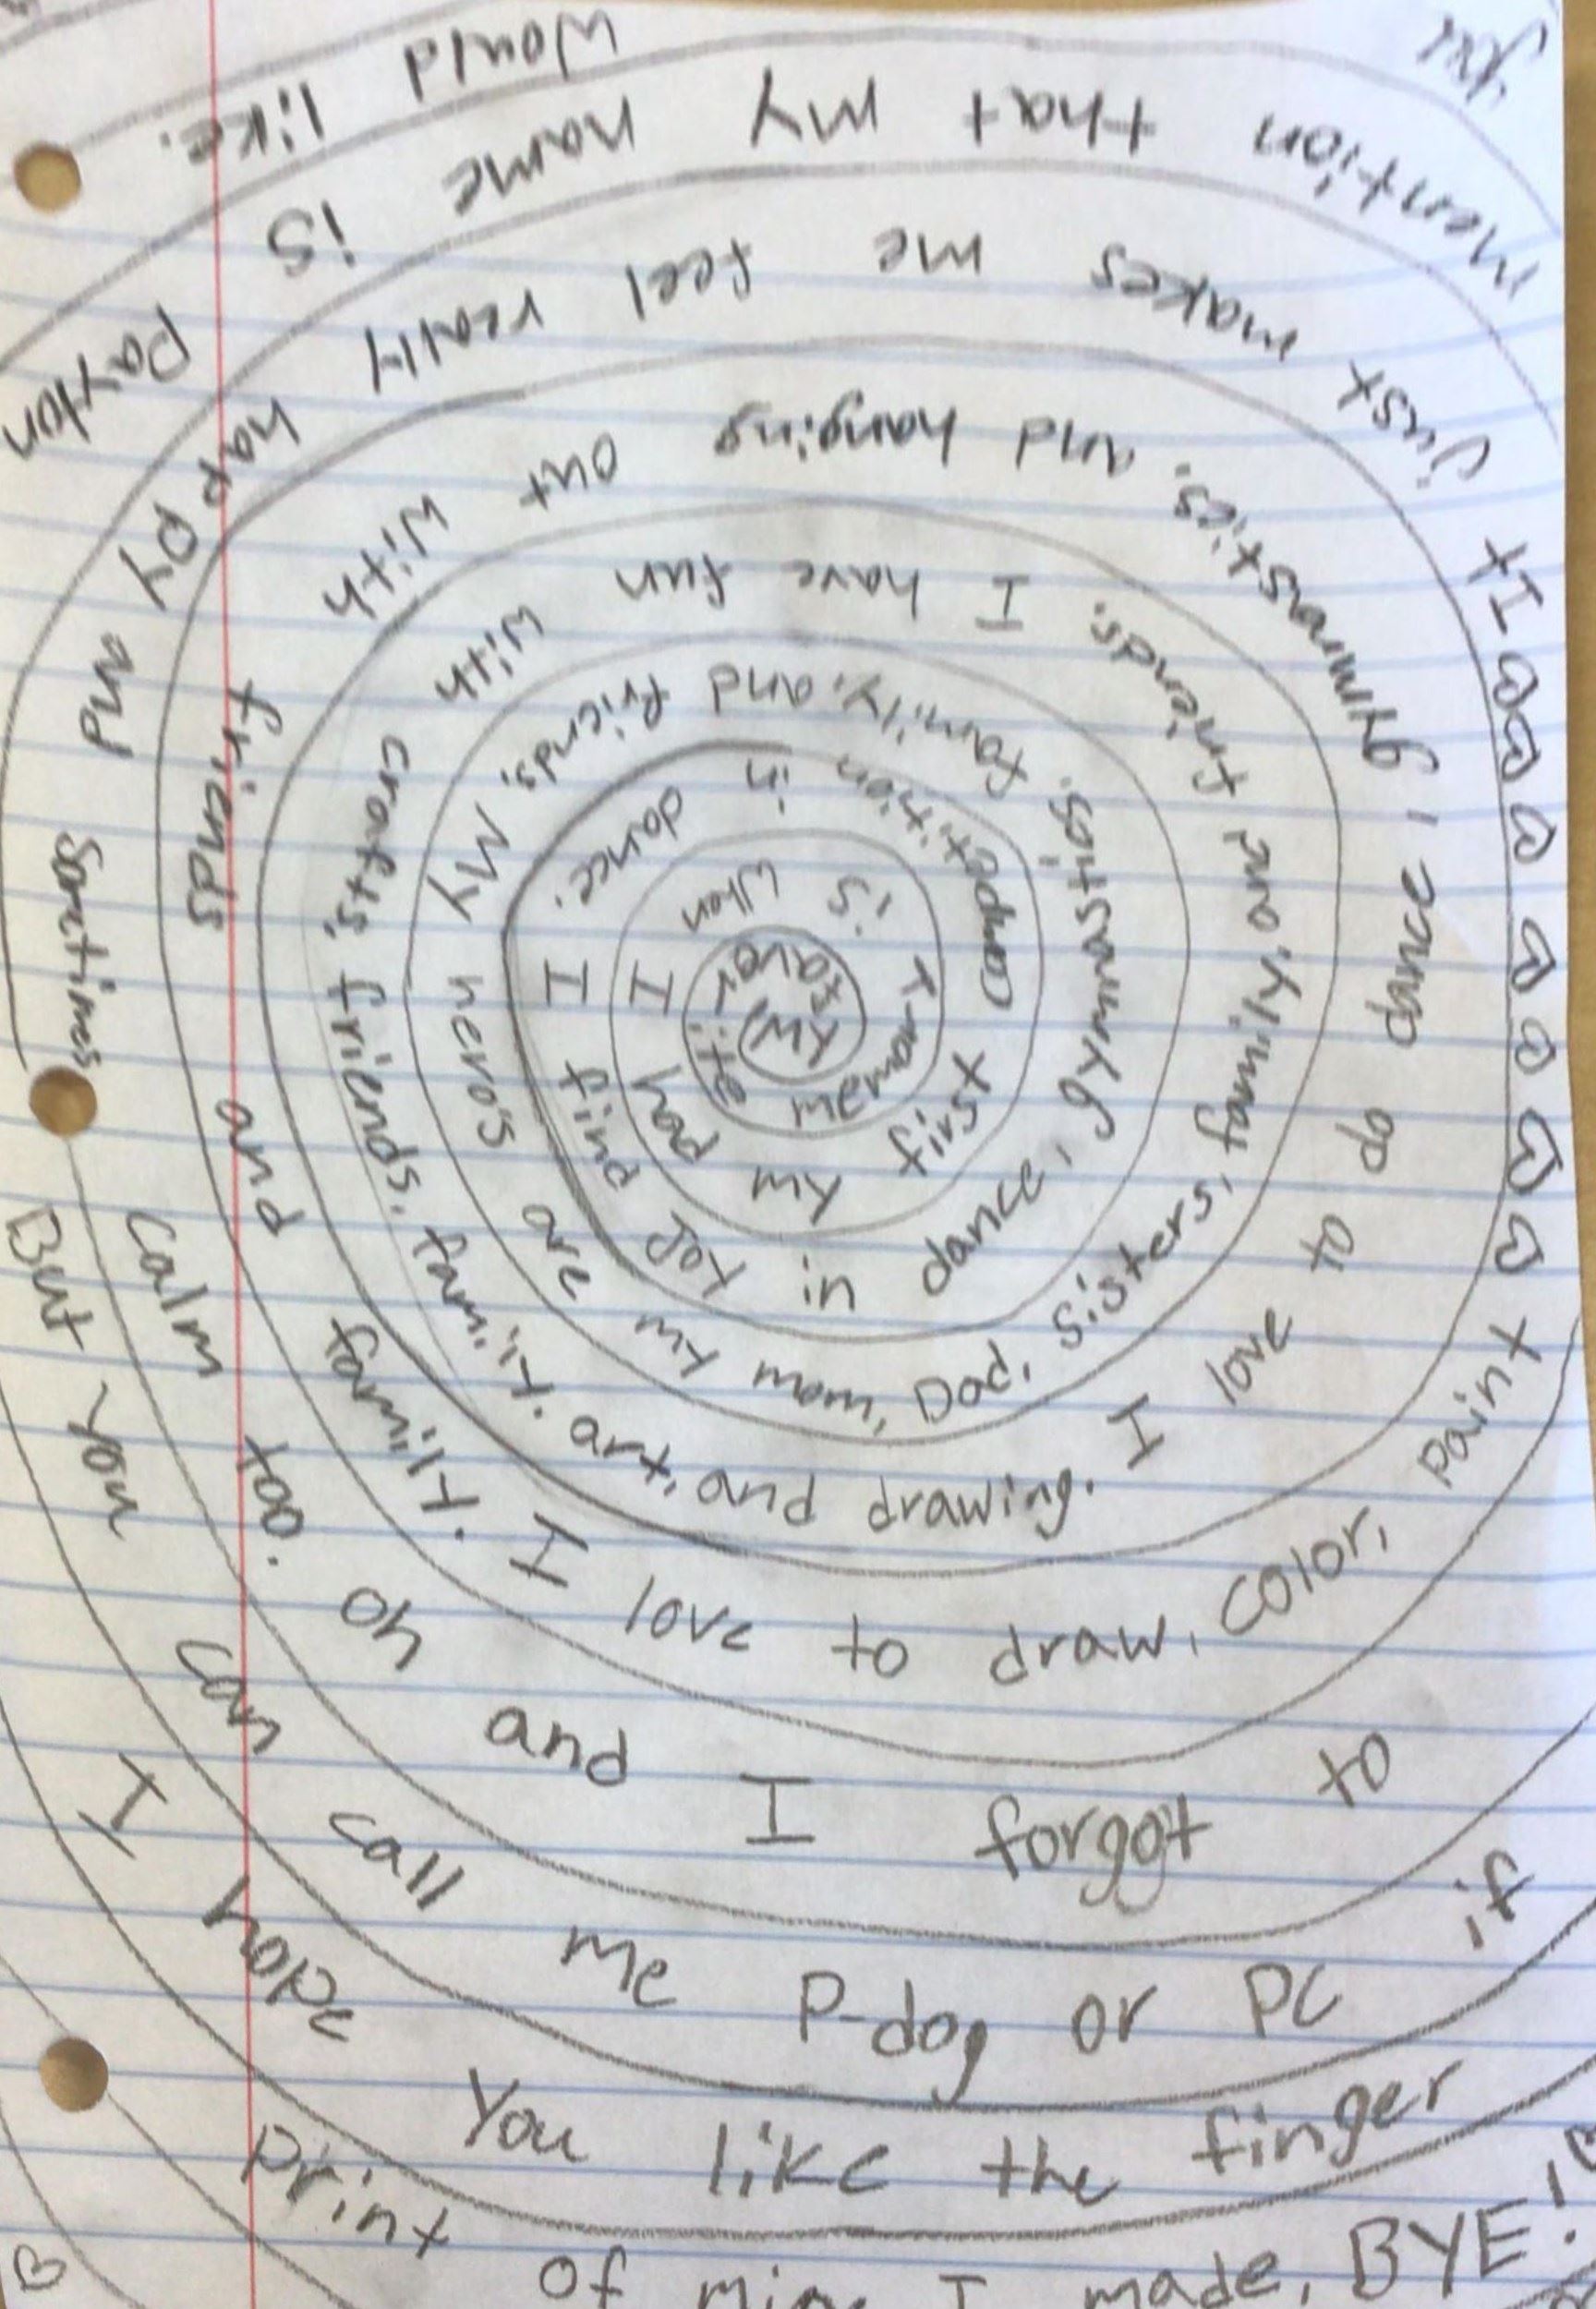 My favorite memary is when I had my first competition in dance.
I find joy in dance, gymnastics, family, and friends.
My hero's are my mom, Dad, sisters, family, and friends.
I have fun with crafts, friends, family, art, and drawing.
I love to do dance, gymnastics, and hanging out with friends and family.
I love to draw, color, paint It just makes me feel really happy and Sometimes calm too.
oh and I forgot to mention that my name is Payton
But you can call me P-dog or PC if you would like.
I hope you like the finger print of I made, BYE!